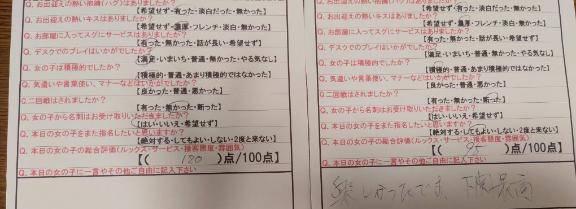 Q. お出迎えの熱い抱擁(ハグ)はありましたか?
【希望せず・有った・淡白だった・無かった】
Q. お出迎えの熱いキスはありましたか?
【希望せず・濃厚・フレンチ・淡白・無かった】
Q. お部屋に入ってスグにサービスはありましたか?
【有った・無かった・話が長い・希望せず】
Q. デスクでのプレイはいかがでしたか?
【満足・いまいち・普通・無かった・やる気なし】
Q. 女の子は積極的でしたか?
【積極的・普通・あまり積極的ではなかった】
Q. 気遣いや言葉使い、マナーなどはいかがでしたか?
【良かった・普通・悪かった】
Q. 二回戦はされましたか?
【有った・無かった・断った】
Q. 女の子から名刺はお受け取りいただきましたか?
【はい・いいえ・希望せず】
Q. 本日の女の子をまた指名したいと思いますか?
【絶対する・してもよい・しない・2度と来ない】
Q. 本日の女の子の総合評価(ルックス・サービス・接客態度・雰囲気)
【( 120 )点/100点】
Q. 本日の女の子に一言やその他ご自由に記入下さい
Q. お出迎えの熱い抱擁(ハグ)はありましたか?
【希望せず・有った・淡白だった・無かった】
Q. お出迎えの熱いキスはありましたか?
【希望せず・濃厚・フレンチ・淡白・無かった】
Q. お部屋に入ってスグにサービスはありましたか?
【有った・無かった・話が長い・希望せず】
Q. デスクでのプレイはいかがでしたか?
【満足・いまいち・普通・無かった・やる気なし】
Q. 女の子は積極的でしたか?
【積極的・普通・あまり積極的ではなかった】
Q. 気遣いや言葉使い、マナーなどはいかがでしたか?
【良かった・普通・悪かった】
Q. 二回戦はされましたか?
【有った・無かった・断った】
Q. 女の子から名刺はお受け取りいただきましたか?
【はい・いいえ・希望せず】
Q. 本日の女の子をまた指名したいと思いますか?
【絶対する・してもよい・しない・2度と来ない】
Q. 本日の女の子の総合評価(ルックス・サービス・接客態度・雰囲気)
【( 95 )点/100点】
Q. 本日の女の子に一言やその他ご自由に記入下さい
楽しかったです。 最高